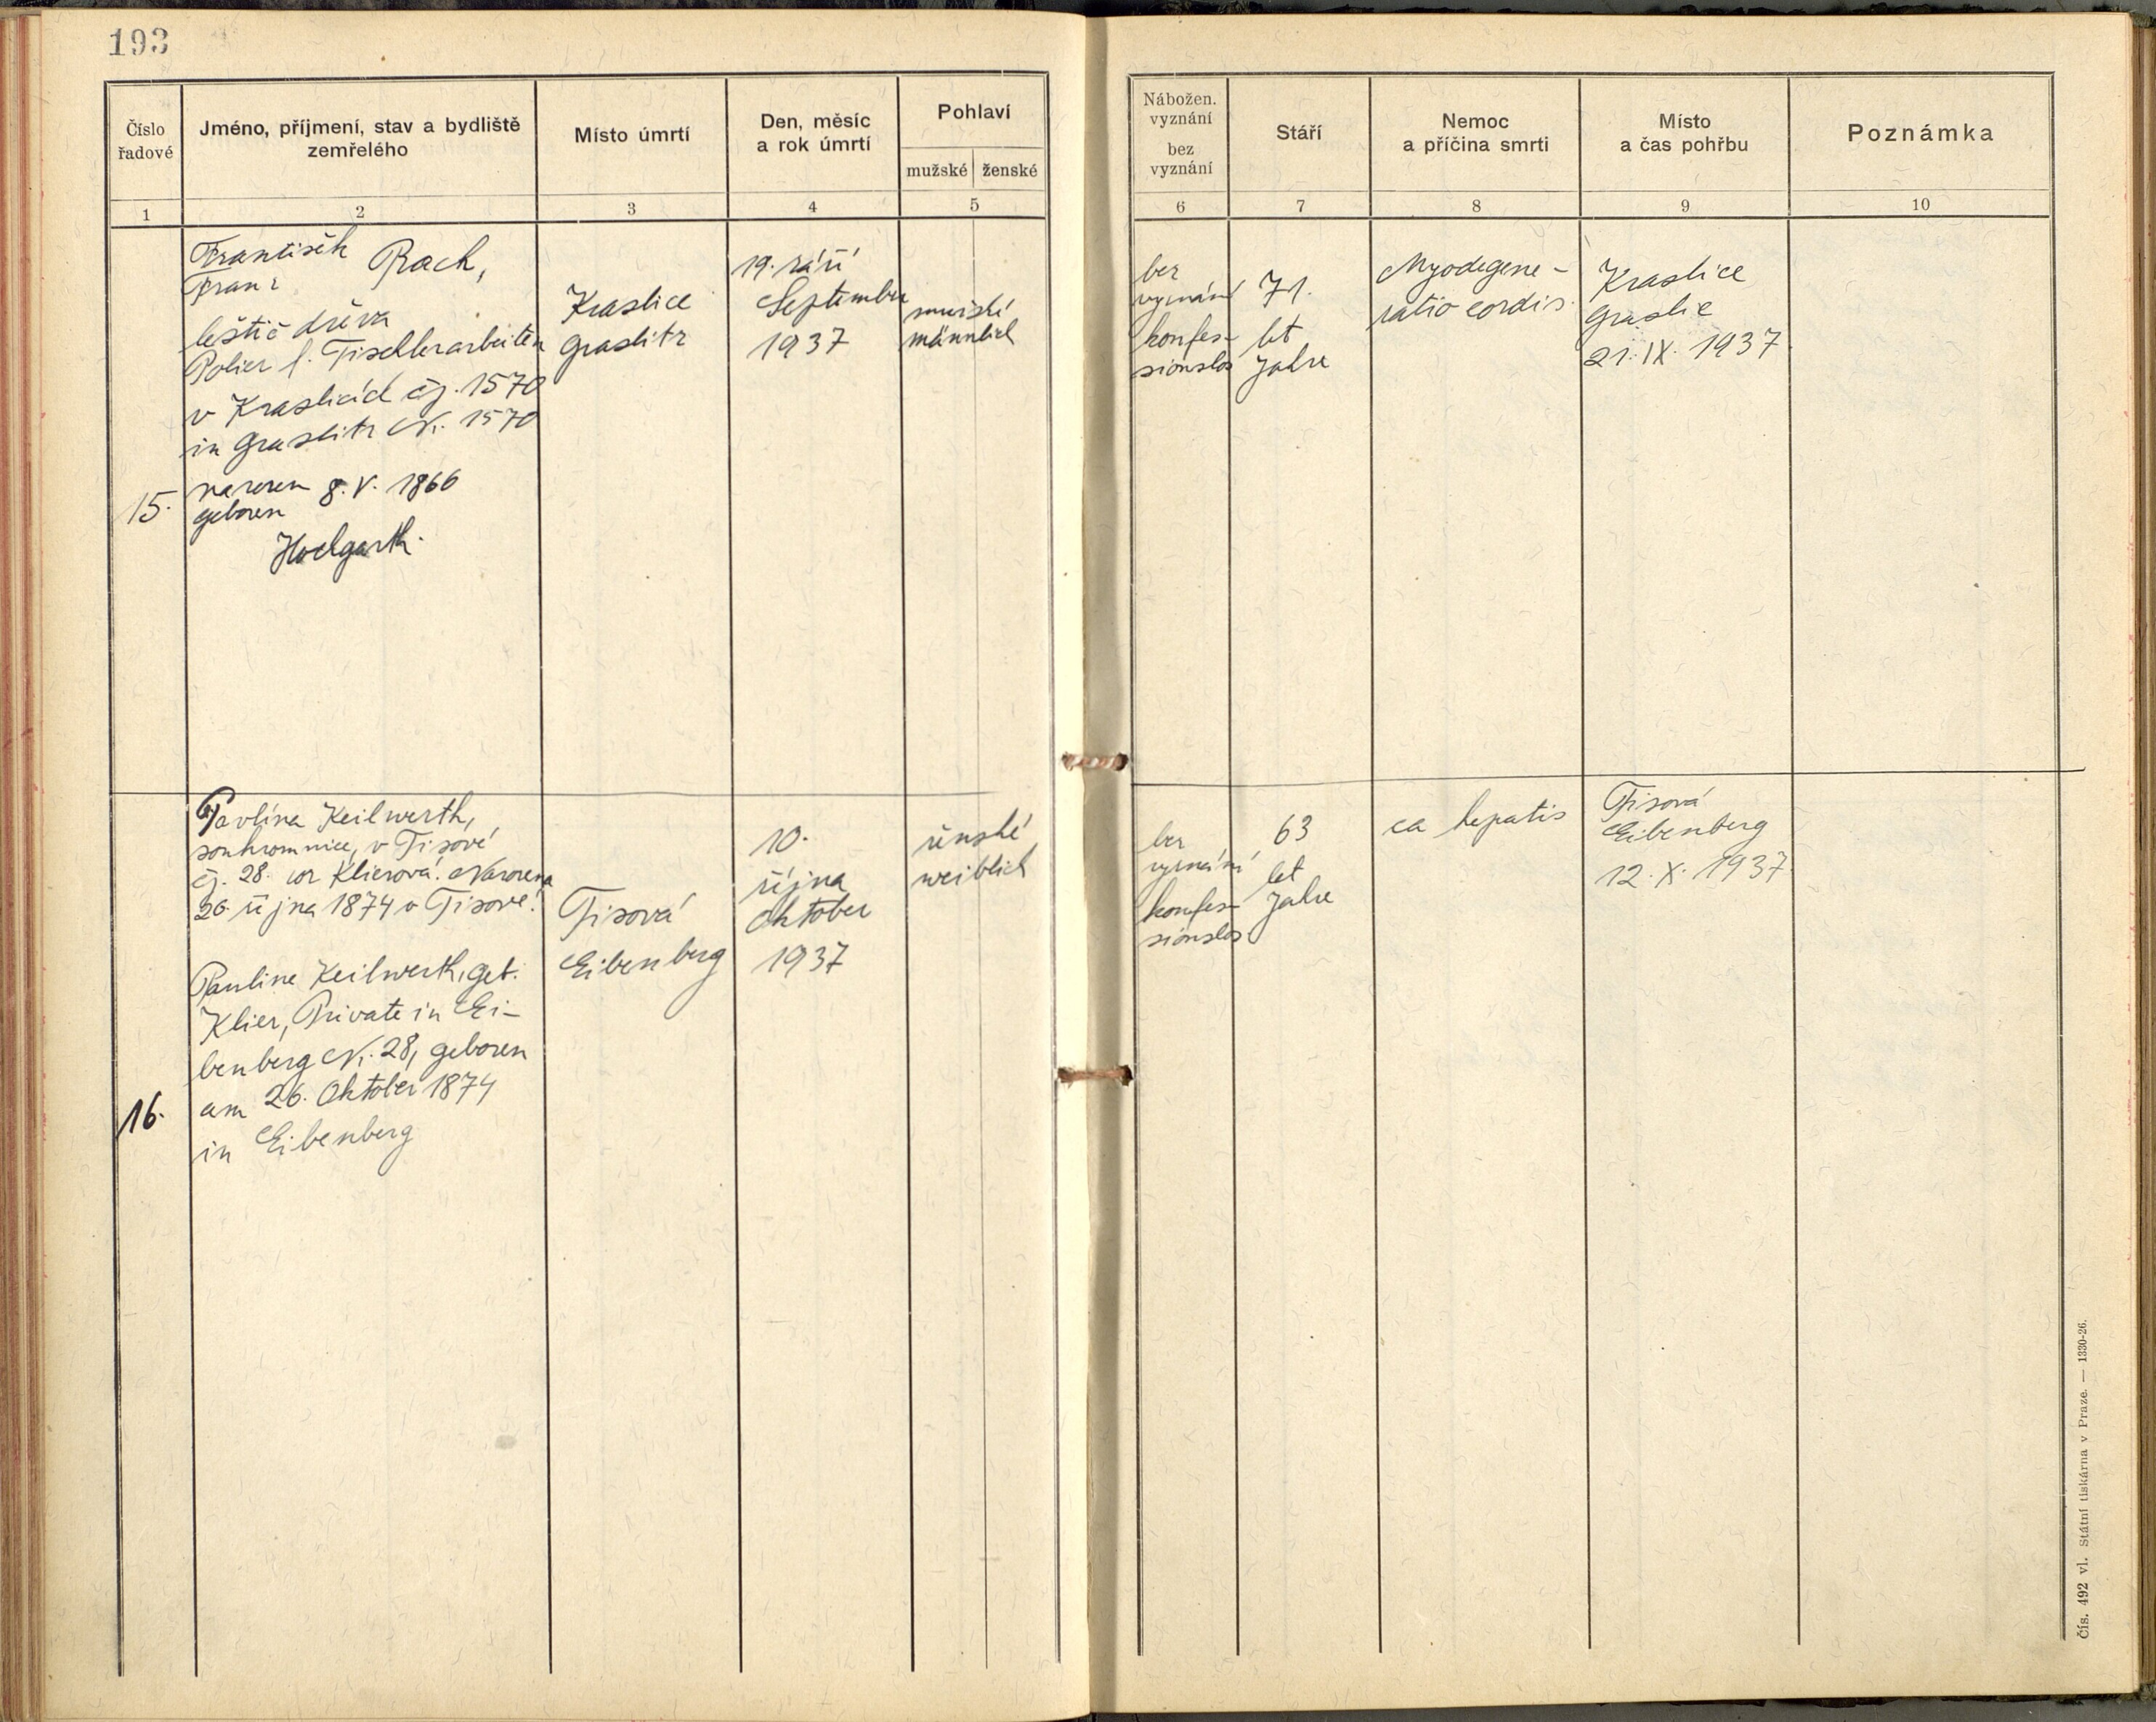 193
Číslo
řadové
Jméno, příjmení, stav a bydliště
zemřelého
Místo úmrtí
Den, měsíc
a rok úmrtí
Pohlaví
mužské ženské
1 2 3 4 5
František
Franz
Rach,
leštič dřeva
Polier f. Tischlerarbeiten
v Kraslicích čj. 1570
in Graslitz N. 1570
15.
narozen 8. V. 1866
geboren
Kraslice
Graslitz
19. září
September
1937
mužské
männlich
Pavlína Keilwerth,
soukromnice, v Tisové
čj. 28. roz Klierová. Narozena
26. října 1874 v Tisové.
Pauline Keilwerth, geb.
Klier, Private in Ei-
benberg N. 28, geboren
16.
am 26. Oktober 1874
in Eibenberg
Tisová
Eibenberg
10.
října
Oktober
1937
ženské
weiblich
Nábožen.
vyznání
bez
vyznání
Stáří
Nemoc
a příčina smrti
Místo
a čas pohřbu
Poznámka
6 7 8 9 10
bez
vyznání
konfes-
sionslos
71.
let
Jahre
Myodegene-
ratio cordis.
Kraslice
21. IX. 1937
bez
vyznání
konfes-
sionslos
63
let
Jahre
ca hepatis
Tisová
Eibenberg
12. X. 1937.
Čís. 492 vl. Státní tiskárna v Praze. — 1330-26.